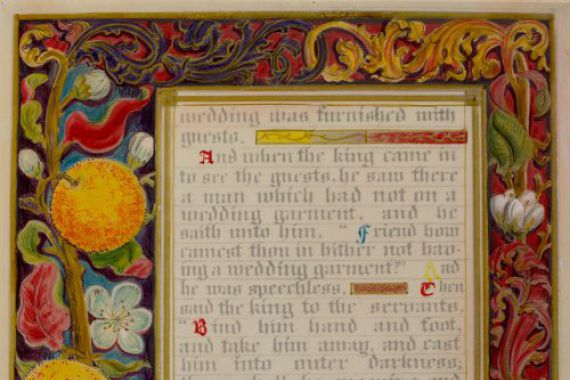 wedding was furnished with
guests.
And when the king came in
to see the guests, he saw there
a man which had not on a
wedding garment, and he
saith unto him, "Friend how
camest thou in hither not hav-
ing a wedding garment?" And
he was speechless. Then
said the king to the servants,
"Bind him hand and foot,
and take him away, and cast
him into outer darkness;